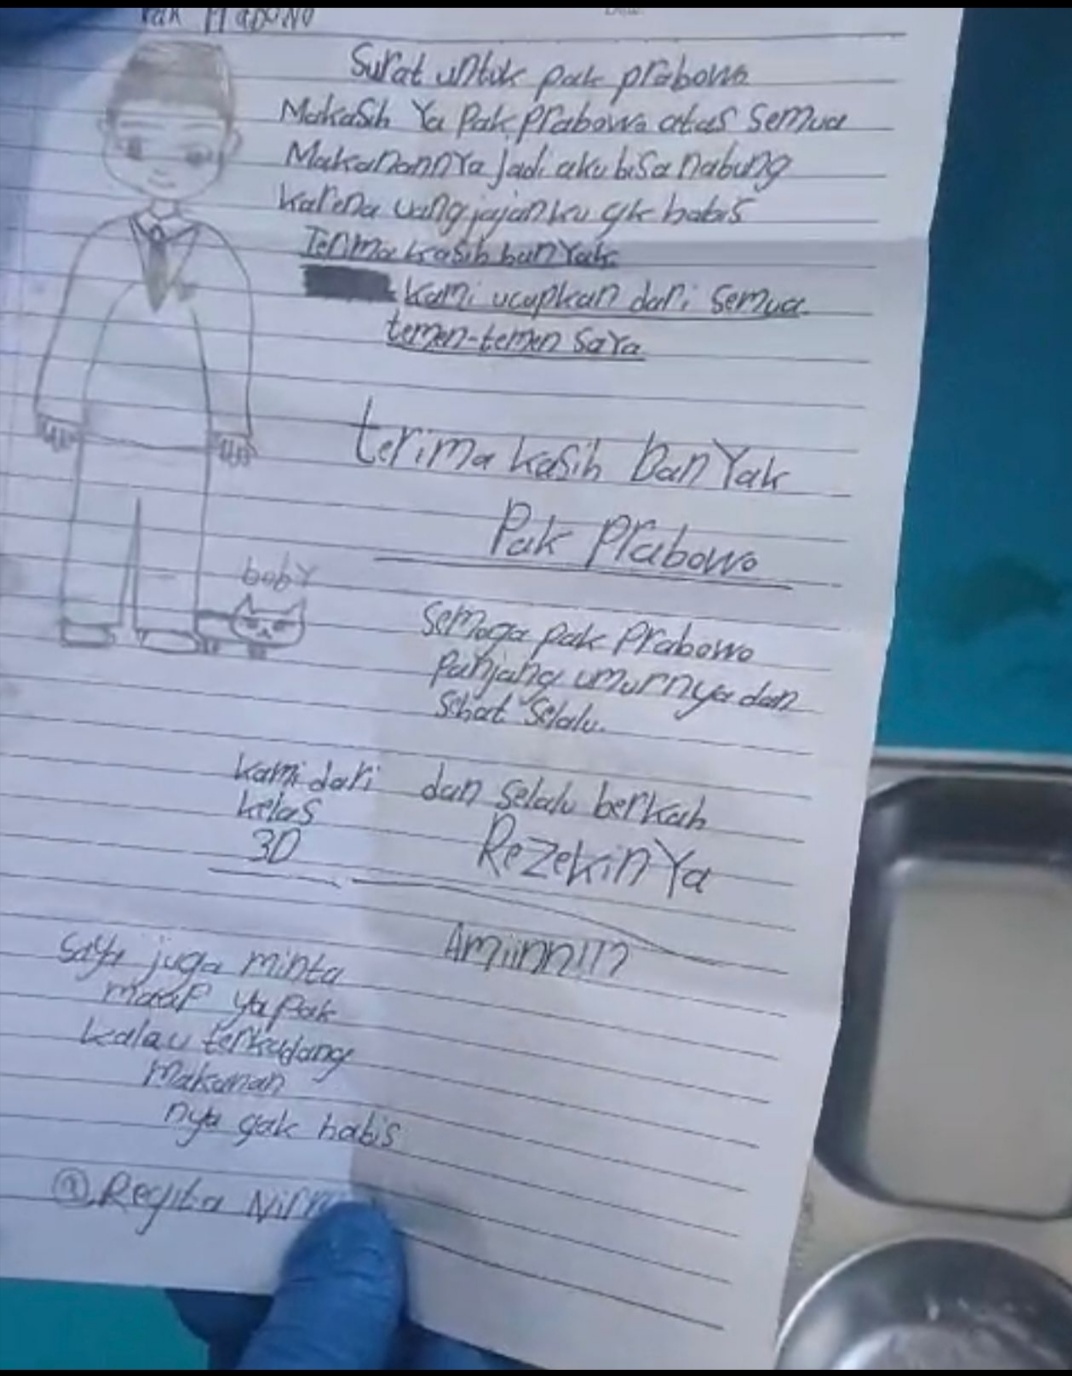 Pak Prabowo
Surat untuk pak prabowo
Makasih Ya Pak Prabowo atas semua
Makanannya jadi aku bisa nabung
karena uang jajanku gk habis
Terima kasih banyak
kami ucapkan dari semua
temen-temen saya
terima kasih banyak
Pak Prabowo
boby
semoga pak Prabowo
Panjang umurnya dan
sehat selalu.
dan selalu berkah
Rezekinya
Amiinn!!!
kami dari
kelas
3D
saya juga minta
maaf ya pak
kalau terkadang
makanan
nya gak habis